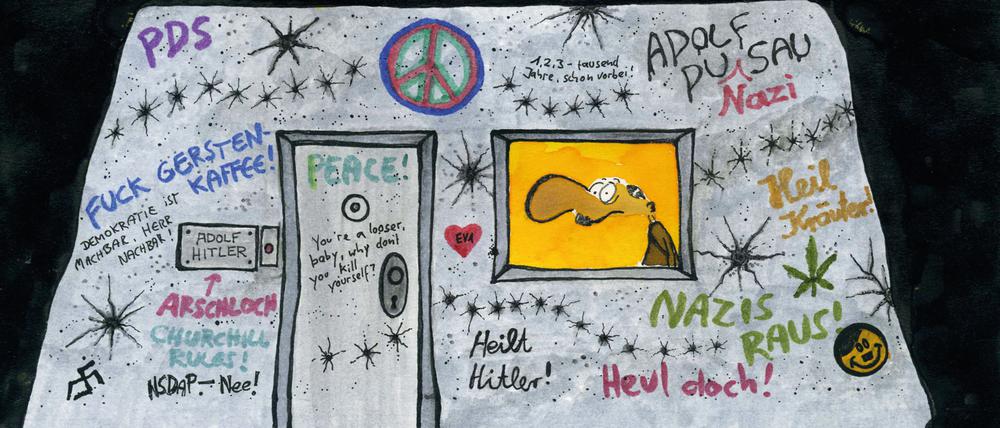 PDS
1,2,3 - tausend
Jahre, schon vorbei!
ADOLF
DU SAU
Nazi
FUCK GERSTEN-
KAFFEE!
PEACE!
Heil
Kräuter!
DEMOKRATIE IST
MACHBAR, HERR
NACHBAR!
ADOLF
HITLER
You're a looser,
baby, why dont
you kill
yourself?
EVA
ARSCHLOCH
CHURCHILL
RULES!
NSDAP - Nee!
NAZIS
RAUS!
Heilt
Hitler!
Heul doch!